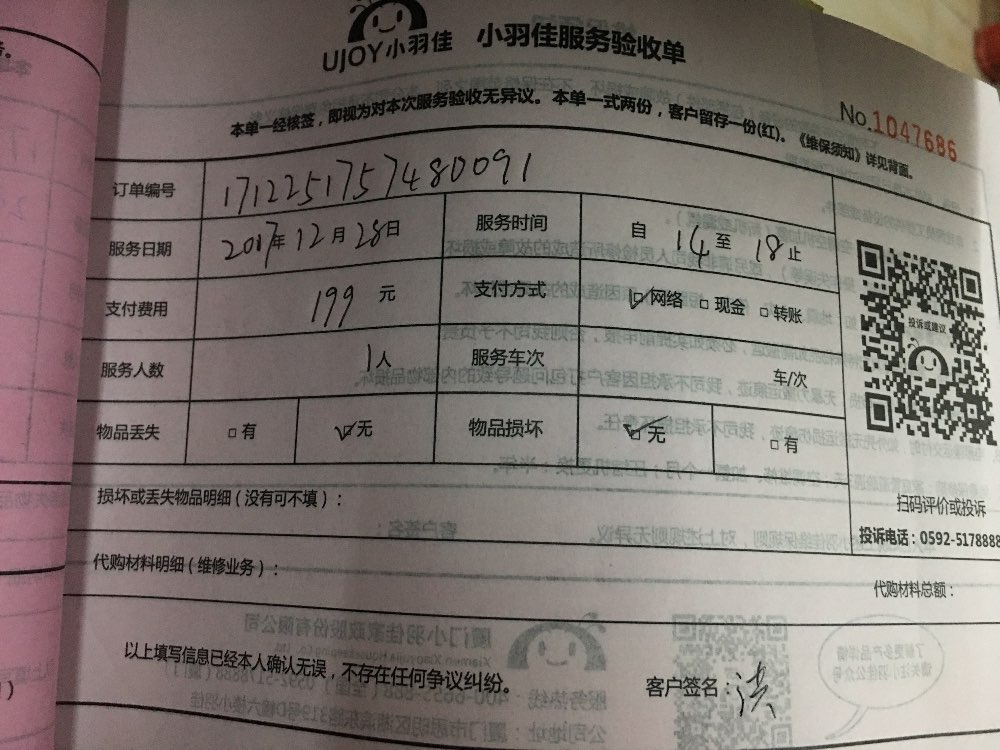 UJOY小羽佳 小羽佳服务验收单
本单一经核签，即视为对本次服务验收无异议。本单一式两份，客户留存一份(红)。《维保须知》详见背面。
No.1047686
订单编号 1712251757480091
服务日期 2017年12月28日 服务时间 自 14 至 18 止
支付费用 199 元 支付方式 ☑网络 □现金 □转账
服务人数 1人 服务车次 车/次
物品丢失 □有 ☑无 物品损坏 ☑无 □有
投诉或建议
扫码评价或投诉
投诉电话：0592-5178888
损坏或丢失物品明细（没有可不填）：
代购材料明细（维修业务）：
代购材料总额：
以上填写信息已经本人确认无误，不存在任何争议纠纷。
客户签名：洪